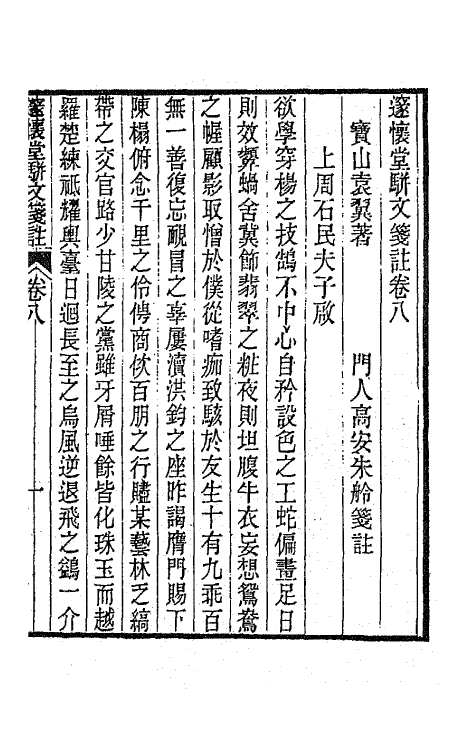 邃懷堂駢文箋註卷八
寶山袁翼著　門人高安朱舲箋註
上周石民夫子啟
欲學穿楊之技鵠不中心自矜設色之工蛇偏畫足日
則效顰蝸舍冀飾翡翠之粧夜則坦腹牛衣妄想鴛鴦
之幄顧影取憎於僕從嗜痂致駭於友生十有九乖百
無一善復忘覥冒之辜屢瀆洪鈞之座昨謁膺門賜下
陳榻俯念千里之伶俜商佽百朋之行贐某藝林乏縞
帶之交官路少甘陵之黨雖牙屑唾餘皆化珠玉而越
羅楚練祇耀輿臺日迴長至之烏風逆退飛之鷁一介
邃懷堂駢文箋註　卷八　一